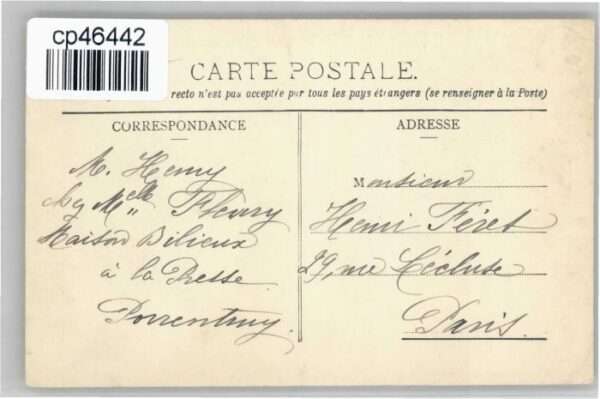 cp46442
CARTE POSTALE.
recto n'est pas acceptée par tous les pays étrangers (se renseigner à la Poste)
CORRESPONDANCE
ADRESSE
M. Henry
Melle Fleury
Maison Bilieux
à la Presse
Porrentruy.
Monsieur
Henri Féret
29, rue Lécluse
Paris.